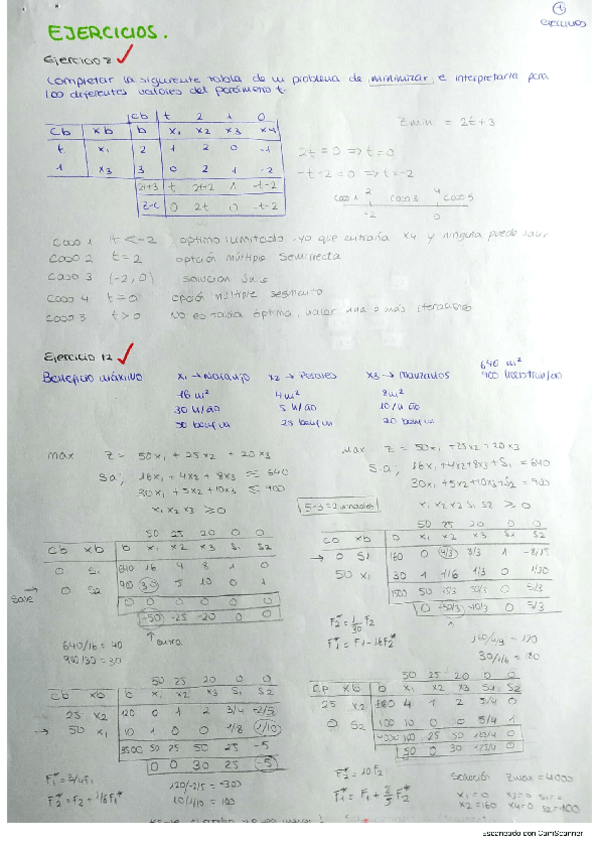 1
EJERCICIOS.
Ejercicio 8
Completar la siguiente tabla de un problema de minimizar e interpretarla para
los diferentes valores del parámetro t.
Cb t 2 1 0
Cb Xb b x1 x2 x3 x4
t x1 2 1 2 0 -1
1 x3 3 0 2 1 -2
2t+3 t 2t+2 1 -t-2
Z-C 0 2t 0 -t-2
Zmin = 2t+3
2t = 0 => t=0
-t-2=0 => t=-2
Caso 1 2 Caso 3 4 Caso 5
-2 0
Caso 1 t < -2 óptimo ilimitado, ya que entraría x4 y ninguna puede salir
Caso 2 t = 2 opción múltiple semirrecta
Caso 3 (-2, 0) solución única
Caso 4 t = 0 opción múltiple segmento
Caso 5 t > 0 No estaría óptima, una o más iteraciones
Ejercicio 12
Beneficio máximo x1 → Naranjo x2 → Perales x3 → Manzanos 640 m²
16 m² 4 m² 8 m²
30 h/año 5 h/año 10 h/año
50 25 20
Max Z = 50x1 + 25x2 + 20x3
S.a; 16x1 + 4x2 + 8x3 ≤ 640
30x1 + 5x2 + 10x3 ≤ 900
x1 x2 x3 ≥ 0
Max Z = 50x1 + 25x2 + 20x3
S.a; 16x1 + 4x2 + 8x3 + S1 = 640
30x1 + 5x2 + 10x3 + S2 = 900
x1 x2 x3 S1 S2 ≥ 0
5-3=2
50 25 20 0 0
Cb Xb b x1 x2 x3 S1 S2
0 S1 640 16 4 8 1 0
Sale 0 S2 900 30 5 10 0 1
0 0 0 0 0 0
-50 -25 -20 0 0
entra
640/16 = 40
900/30 = 30
50 25 20 0 0
Cb Xb b x1 x2 x3 S1 S2
0 S1 160 0 4/3 8/3 1 -8/15
50 x1 30 1 1/6 1/3 0 1/30
1500 50 25/3 50/3 0 5/3
0 -50/3 -10/3 0 5/3
F2* = 1/30 F2
F1* = F1 - 16F2*
30/1/6 = 180
50 25 20 0 0
Cb Xb b x1 x2 x3 S1 S2
25 x2 120 0 1 2 3/4 -2/5
50 x1 10 1 0 0 1/8 1/10
3500 50 25 50 25 -5
0 0 30 25 -5
F1* = 3/4 F1
F2* = F2 - 1/6 F1*
120/-2/5 = -300
10/1/10 = 100
50 25 20 0 0
Xb b x1 x2 x3 S1 S2
25 x2 160 4 1 2 5/4 0
0 S2 100 10 0 0 5/4 1
4000 100 25 50 125/4 0
50 0 30 125/4 0
F2* = 10F2
F1* = F1 + 2/5 F2*
Solución Zmax = 4000
x1=0 x3=0 S1=0
x2=160 x4=0 S2=100
Escaneado con CamScanner